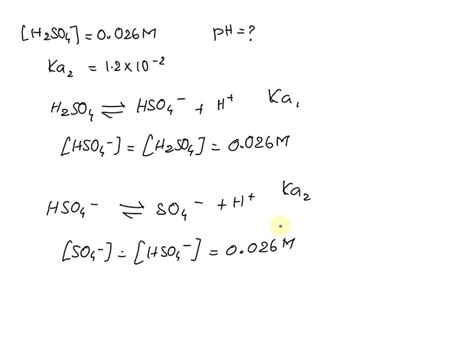 [H₂SO₄] = 0.026M pH = ?
Ka₂ = 1.2×10⁻²
H₂SO₄ ⇌ HSO₄⁻ + H⁺ Ka₁
[HSO₄⁻] = [H₂SO₄] = 0.026M
HSO₄⁻ ⇌ SO₄⁻ + H⁺ Ka₂
[SO₄⁻] = [HSO₄⁻] = 0.026M